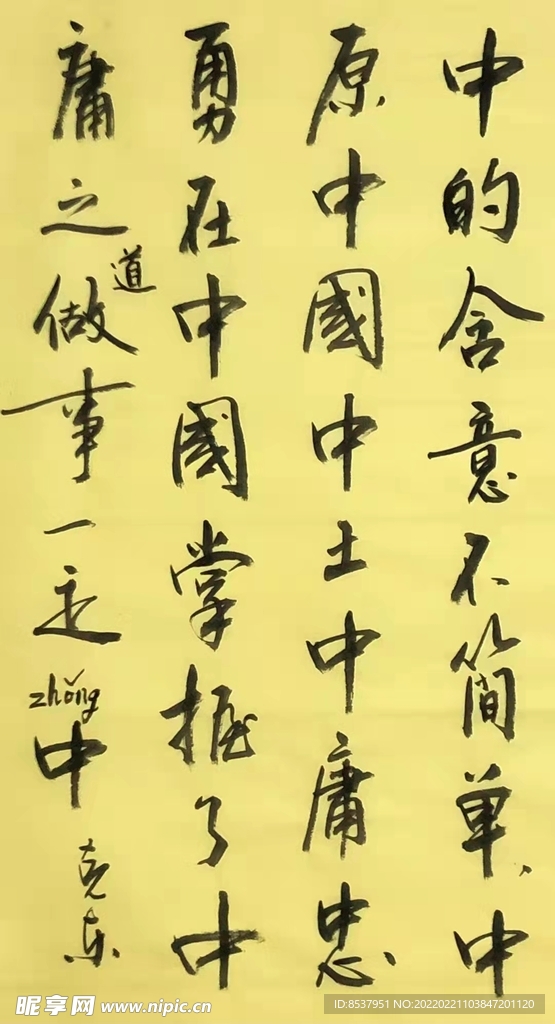 中的含意不简单、中
原中國中土中庸忠、
勇在中國掌握了中
庸之道做事一定
zhǒng
中
克东
昵享网 www.nipic.cn
ID:8537951 NO:20220221103847201120